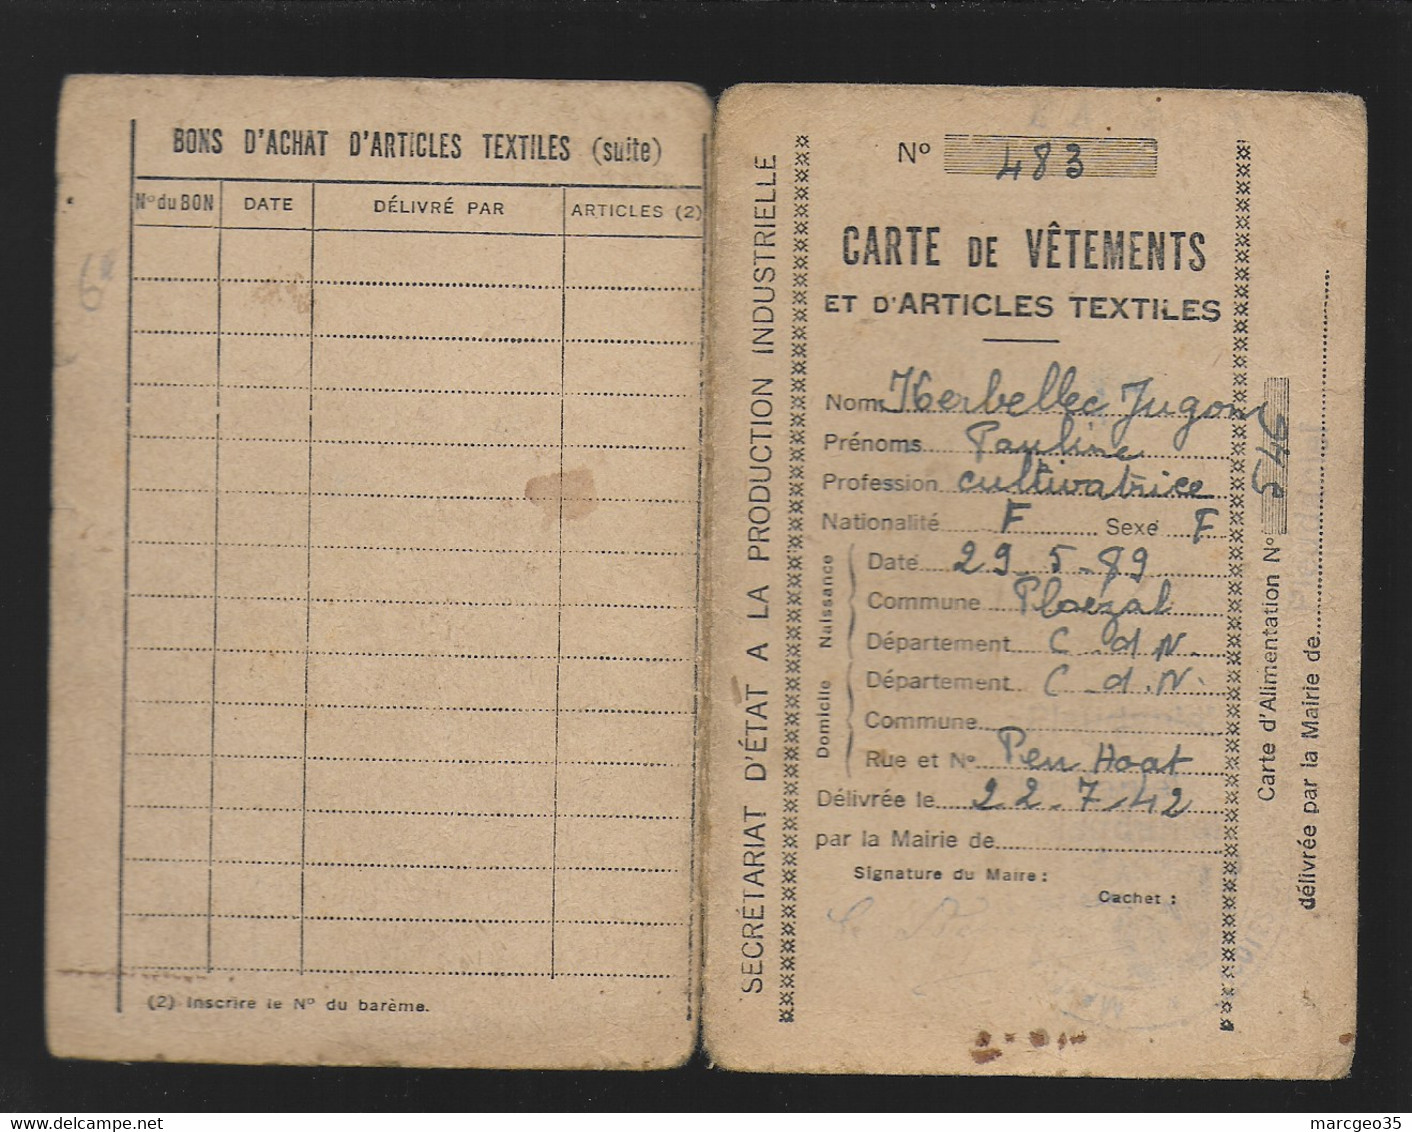 BONS D'ACHAT D'ARTICLES TEXTILES (suite)
N° du BON DATE DÉLIVRÉ PAR ARTICLES (2)
(2) Inscrire le N° du barème.
SECRÉTARIAT D'ÉTAT A LA PRODUCTION INDUSTRIELLE
N° 483
CARTE DE VÊTEMENTS
ET D'ARTICLES TEXTILES
Nom Kerbellec Jugon
Prénoms Pauline
Profession cultivatrice
Nationalité F Sexe F
Naissance
Date 29-5-89
Commune Ploezal
Département C-d.N.
Domicile
Département C-d.N.
Commune
Rue et N° Pen Hoat
Délivrée le 22-7-42
par la Mairie de
Signature du Maire :
Cachet :
Carte d'Alimentation N° 546
délivrée par la Mairie de
marcgeo35